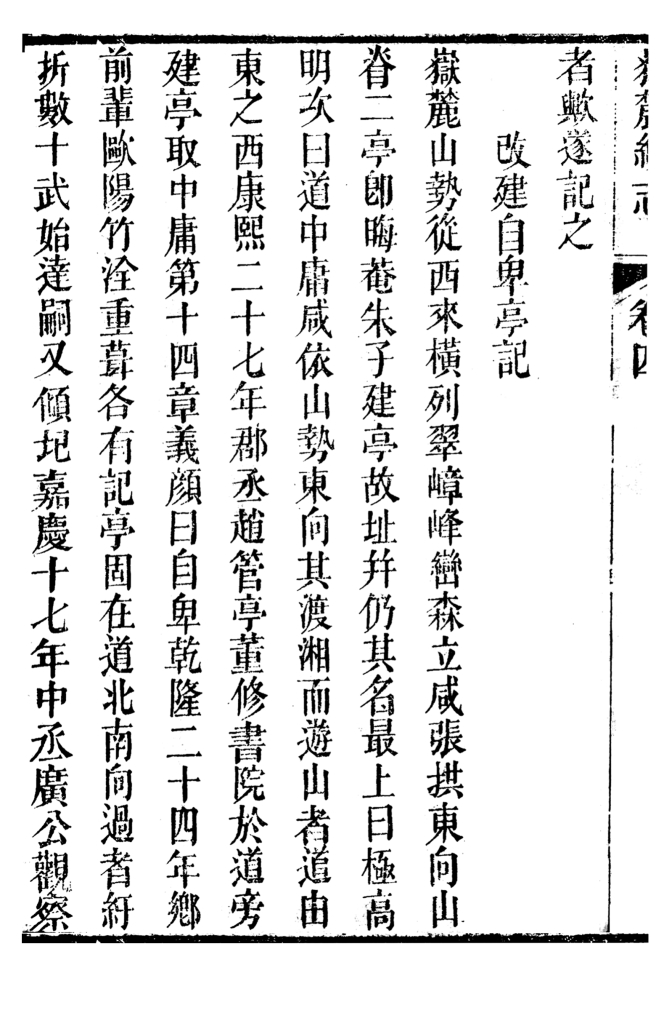 嶽麓續志
卷四
者歟遂記之
改建自卑亭記
嶽麓山勢從西來橫列翠嶂峰巒森立咸張拱東向山
脊二亭卽晦菴朱子建亭故址幷仍其名最上曰極高
明次曰道中庸咸依山勢東向其渡湘而遊山者道由
東之西康熙二十七年郡丞趙管亭董修書院於道旁
建亭取中庸第十四章義顏曰自卑乾隆二十四年鄉
前輩歐陽竹洤重葺各有記亭固在道北南向過者紆
折數十武始達嗣又傾圮嘉慶十七年中丞廣公觀察